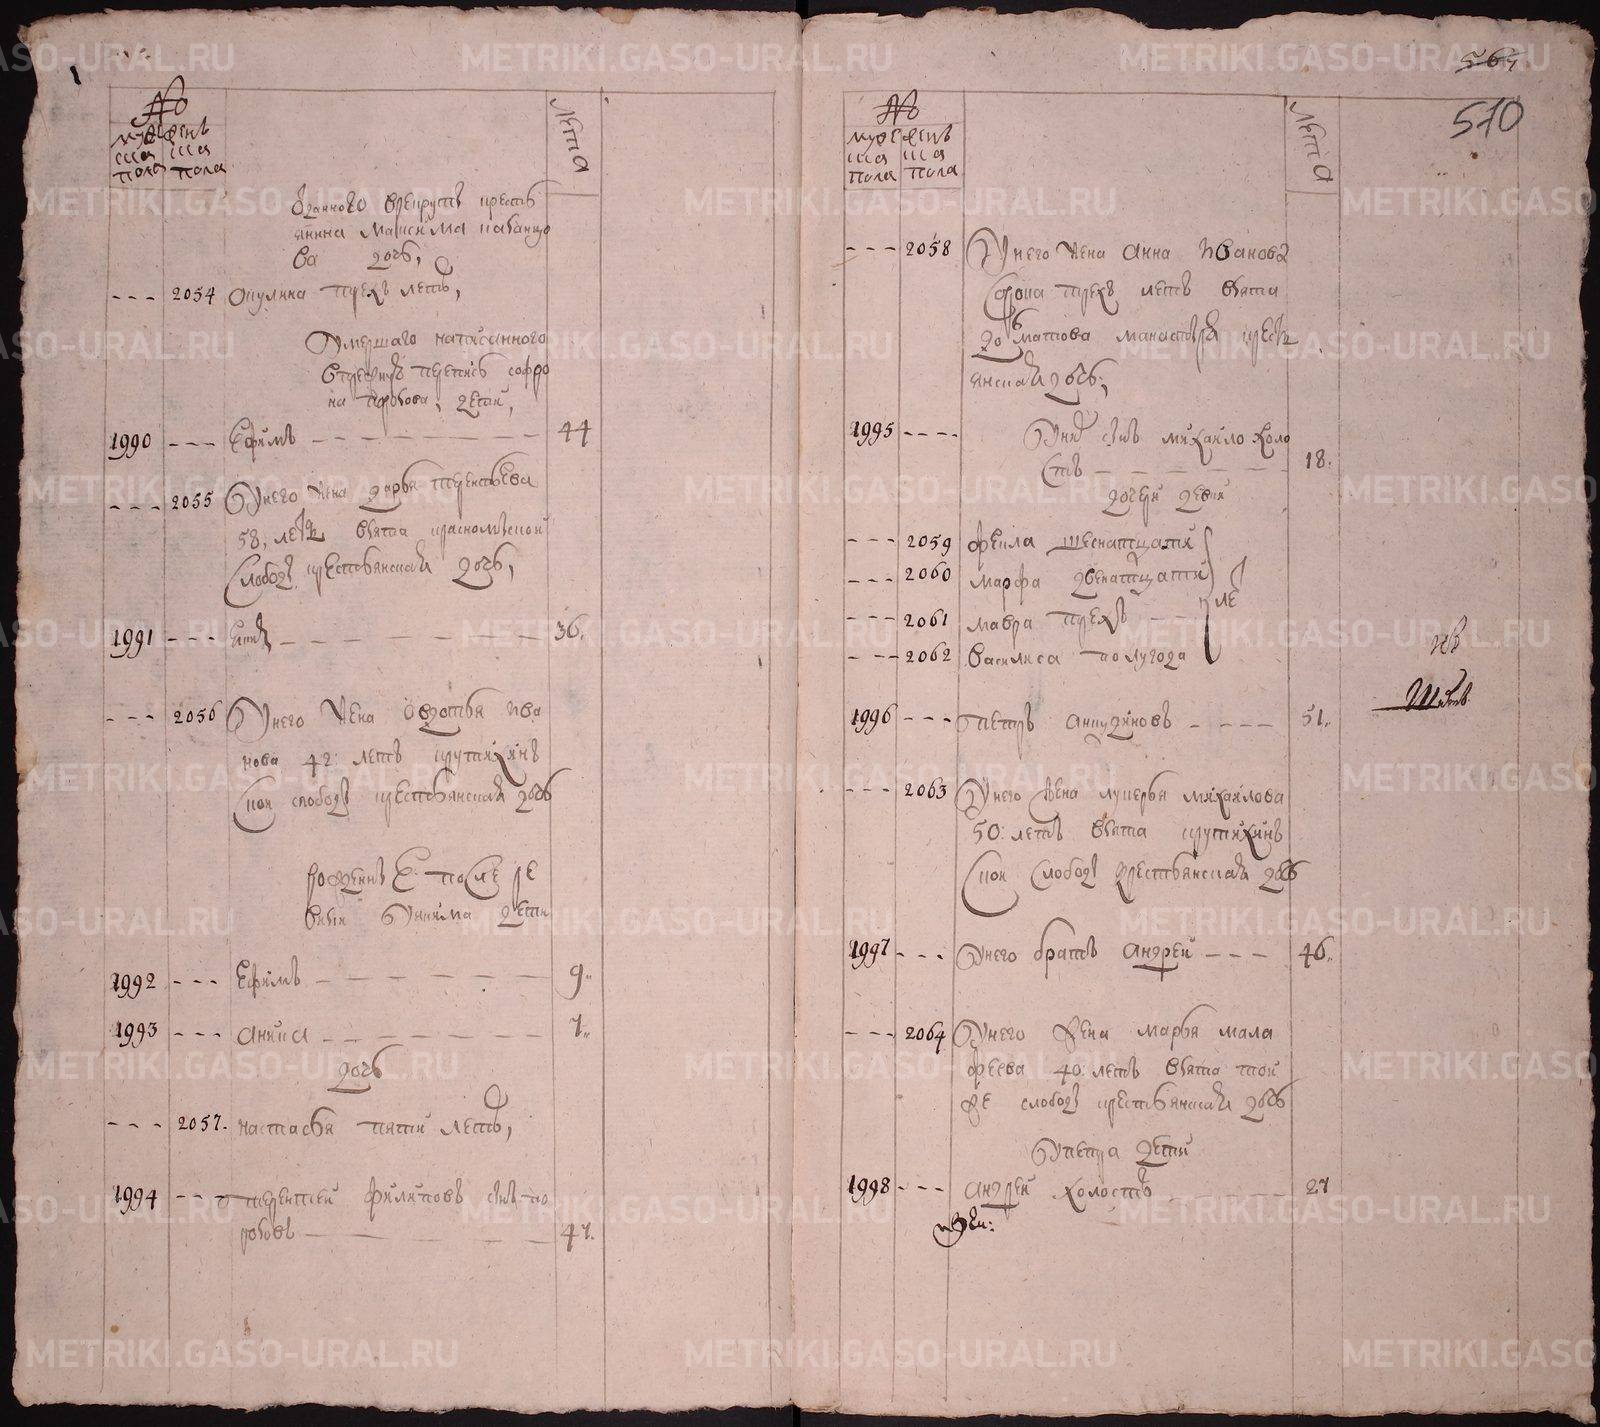 №
мужеска пола
женска пола
лета
данного врекруты кресть
янина максима казанцо
ва дочь,
--- 2054 Окулина трех летъ,
Умершаго написанного
втрежнюю перепись софро
на дети,
1990 --- Ефимъ --- 44
--- 2055 Унего жена дарья терентьева
58, летъ взята красномыской
слободы крестьянская дочь,
1991 --- --- 36.
--- 2056 Унего жена овдотья ива
нова 42: летъ крутихин
ской слободы крестьянская дочь
рожденные после ре
визи дети
1992 --- Ефимъ --- 9.
1993 --- аника --- 7.
дочь
--- 2057. настасья пяти летъ,
1994 --- терентей филиповъ сынъ
--- 47.
564
510
№
мужеска пола
женска пола
лета
--- 2058 Унего жена анна иванова
сорока трех летъ взята
долматова манастыря кресть
янская дочь,
1995 --- Них сынъ михаило холо
стъ --- 18.
дочери девки
--- 2059 фекла шеснатцати
--- 2060 марфа двенатцати
--- 2061 мавра трехъ
ле
--- 2062 василиса полугода
1996 --- петръ --- 51.
--- 2063 Унего жена лукерья михаилова
50: летъ взята крутихин
ской слободы крестьянская дочь
1997 --- Унего братъ андрей --- 46.
--- 2064 Унего жена марья мала
феева 40: летъ взята той
же слободы крестьянская дочь
Упетра дети
1998 --- андрей холостъ --- 27